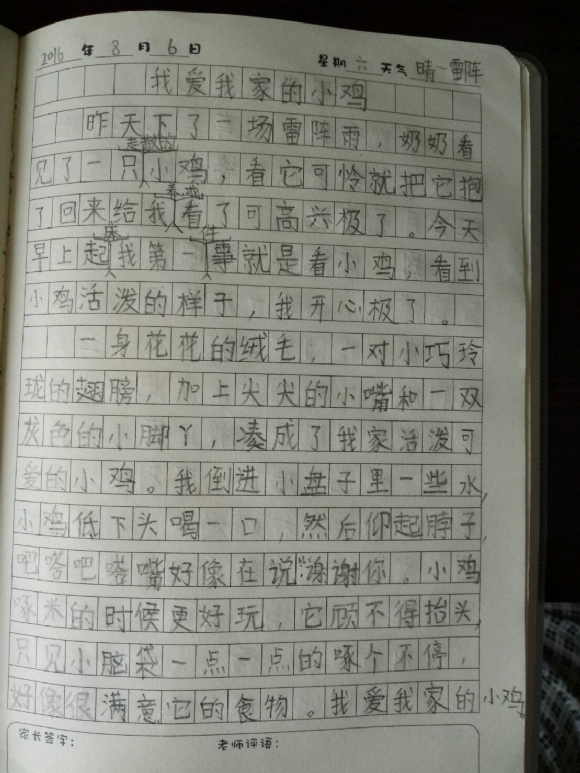 2016 年 8 月 6 日 星期 六 天气 晴~雷阵
我爱我家的小鸡
昨天下了一场雷阵雨，奶奶看
走散的
见了一只小鸡，看它可怜就把它抱
了回来给我看了可高兴极了。今天
床 件
早上起我第一事就是看小鸡，看到
小鸡活泼的样子，我开心极了。
一身花花的绒毛，一对小巧玲
珑的翅膀，加上尖尖的小嘴和一双
灰色的小脚丫，凑成了我家活泼可
爱的小鸡。我倒进小盘子里一些水，
小鸡低下头喝一口，然后仰起脖子，
吧嗒吧嗒嘴好像在说:谢谢你。小鸡
啄米的时候更好玩，它顾不得抬头，
只见小脑袋一点一点的啄个不停，
好像很满意它的食物。我爱我家的小鸡。
家长签字： 老师评语：